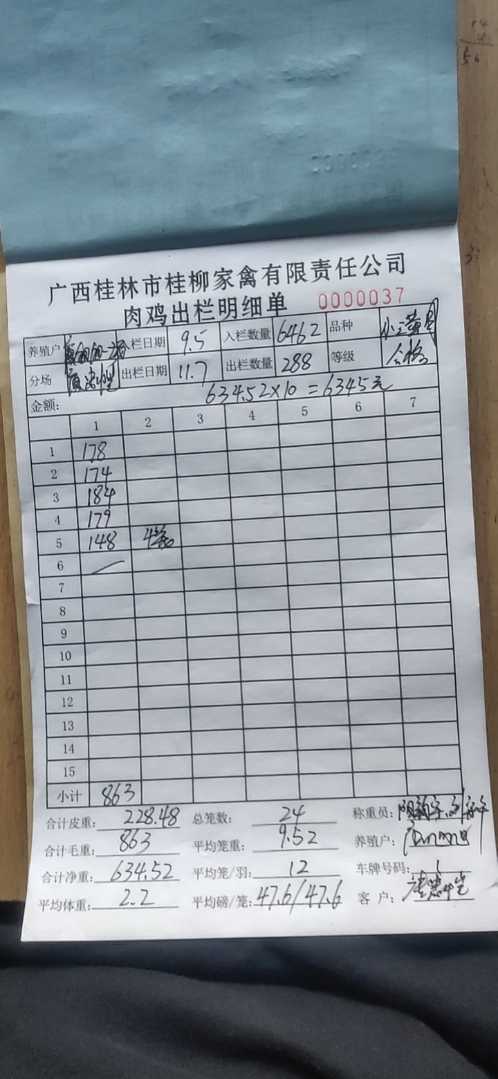 广西桂林市桂柳家禽有限责任公司
肉鸡出栏明细单 0000037
养殖户 入栏日期 9.5 入栏数量 6462 品种 小黄
分场 出栏日期 11.7 出栏数量 288 等级 合格
金额: 634.52×10=6345元
1 2 3 4 5 6 7
1 178
2 174
3 184
4 179
5 148 4笼
6
7
8
9
10
11
12
13
14
15
小计 863
合计皮重: 228.48 总笼数: 24 称重员:
合计毛重: 863 平均笼重: 9.52 养殖户:
合计净重: 634.52 平均笼/羽: 12 车牌号码:
平均体重: 2.2 平均磅/笼: 47.6/47.6 客户: